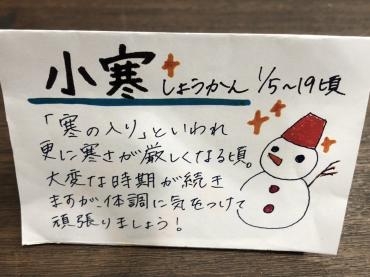 小寒 しょうかん 1/5〜19頃
「寒の入り」といわれ
更に寒さが厳しくなる頃。
大変な時期が続き
ますが、体調に気をつけて
頑張りましょう!